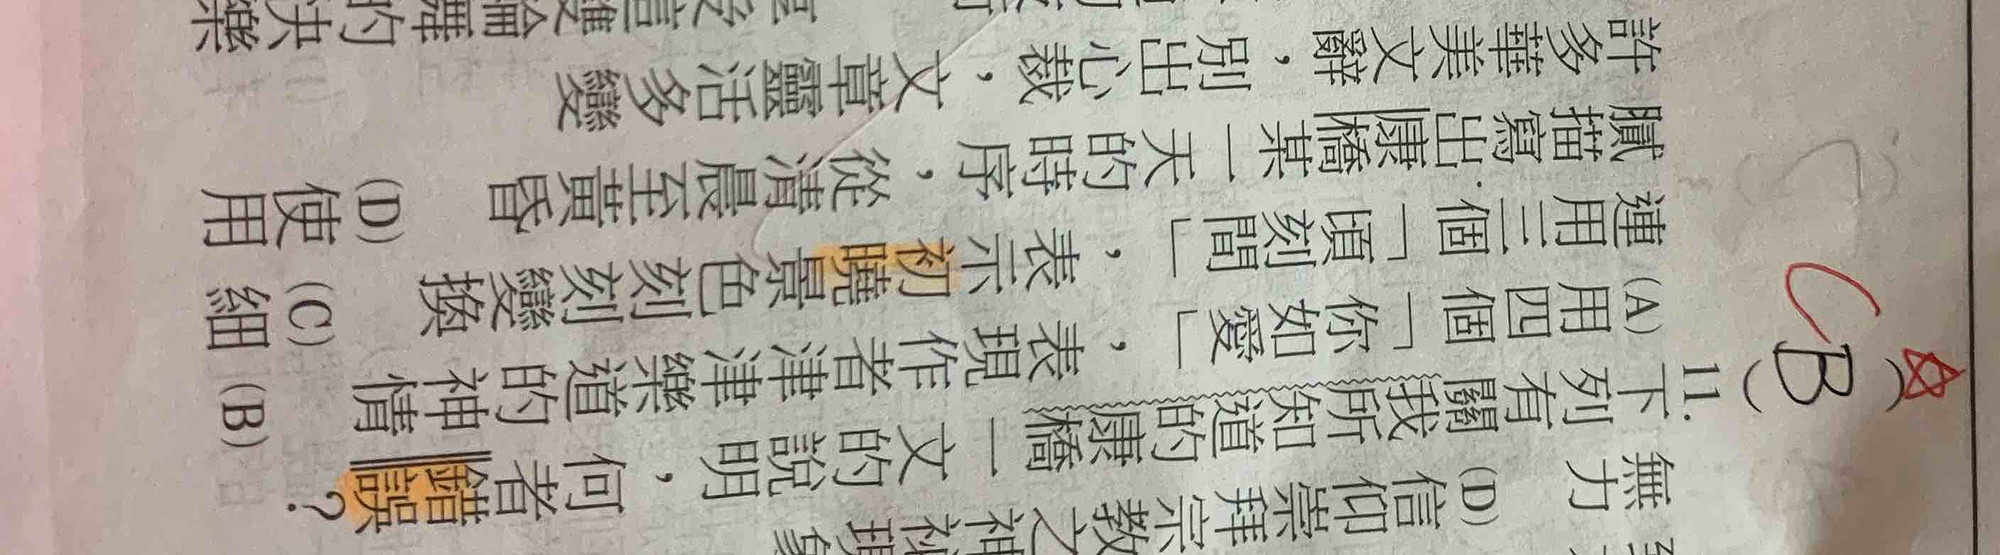 無力 (D)信仰崇拜宗教之神
☆( B ) 11. 下列有關我所知道的康橋一文的說明，何者錯誤？
C
(A)用四個「你如愛」，表現作者津津樂道的神情 (B)
連用三個「頃刻間」，表示初曉景色刻刻變換 (C)細
膩描寫出康橋某一天的時序，從清晨至黃昏 (D)使用
許多華美文辭，別出心裁，文章靈活多變